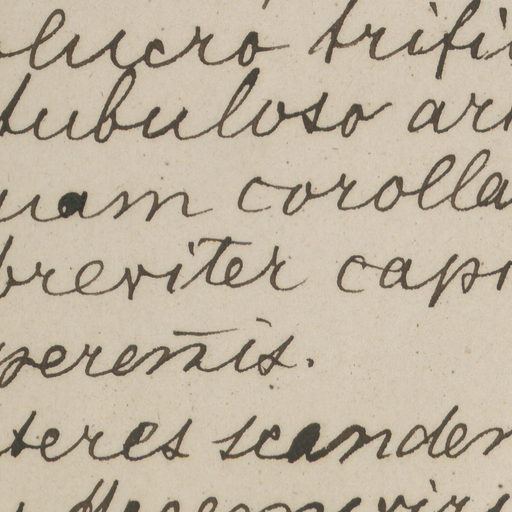 lucro trifi
tubuloso ar
uam corolla
breviter cap
perem̄is.
teres scanden